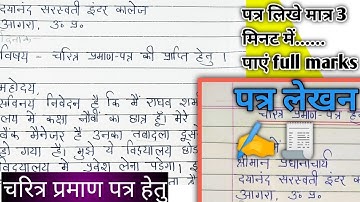 दयानंद सरस्वती इंटर कॉलेज
आगरा, उ० प्र०
दिनांक
विषय - चरित्र प्रमाण-पत्र की प्राप्ति हेतु ।
महोदय,
सविनय निवेदन है कि मैं राघव शर्मा
लय में कक्षा नौवीं का छात्र हूँ। मेरे
बैंक मैनेजर है उनका तबादला दूस
हो गया है। मुझे ये विद्यालय छोड़
विद्यालय में प्रवेश लेना पड़ेगा।
चरित्र प्रमाण पत्र हेतु
पत्र लिखे मात्र 3
मिनट में......
पाएं full marks
पत्र लेखन
चरित्र प्रमाण-पत्र
श्रीमान प्रधानाचार्य
दयानंद सरस्वती इंटर क
आगरा, उ० प्र०